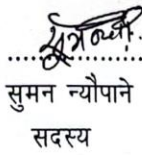 ..................
सुमन न्यौपाने
सदस्य